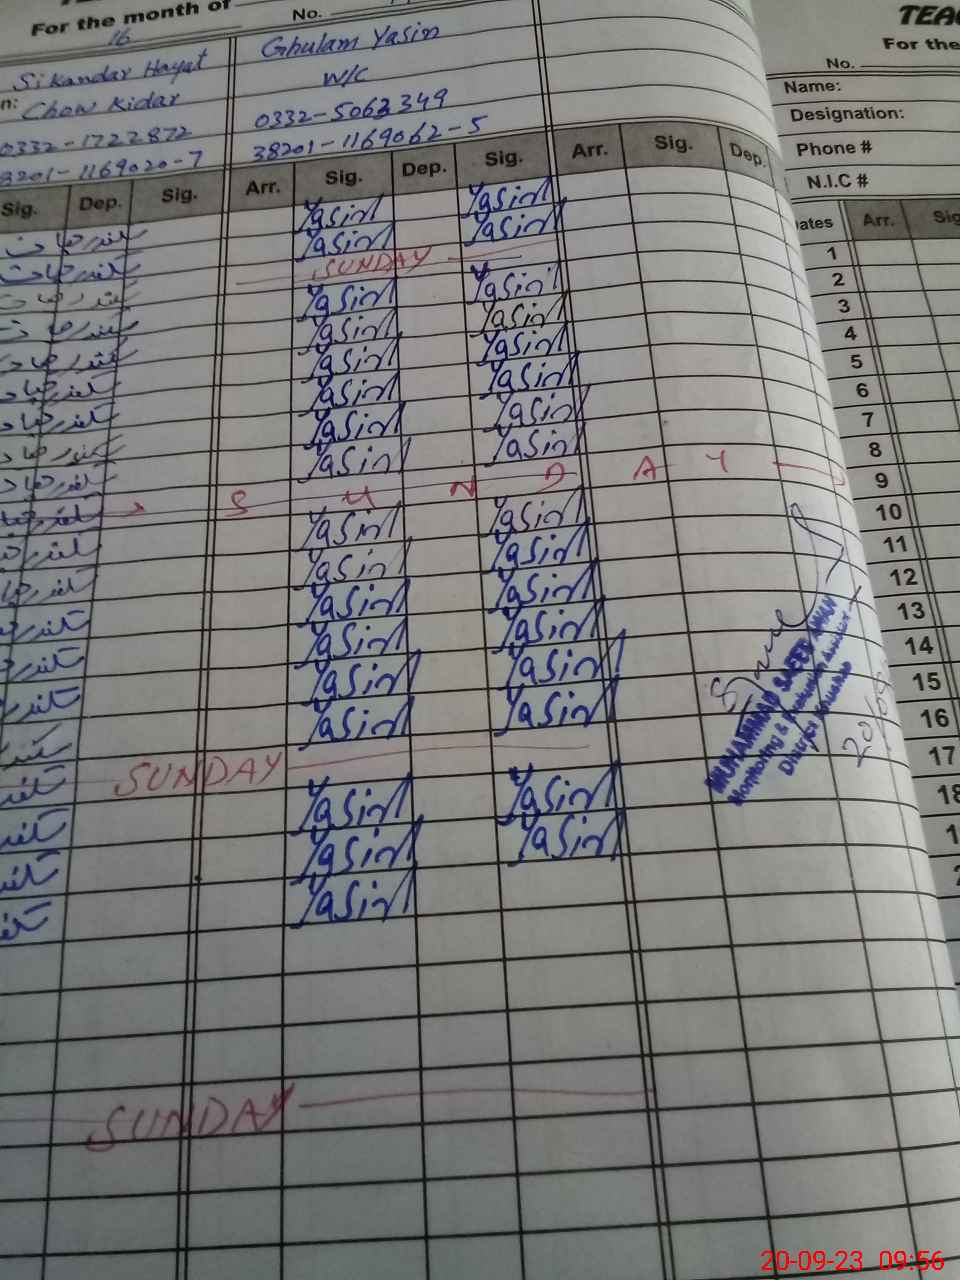 For the month of
No.
16
Sikandar Hayat
Ghulam Yasin
n: Chow Kidar
W/C
0332-1722872
0332-5063349
8201-1169020-7
38201-1169062-5
Sig. Dep. Sig. Arr. Sig. Dep. Sig. Arr. Sig. Dep.
سکندر حیات Yasin Yasin
سکندر حیات Yasin Yasin
سکندر حیات SUNDAY
سکندر حیات Yasin Yasin
سکندر حیات Yasin Yasin
سکندر حیات Yasin Yasin
سکندر حیات Yasin Yasin
سکندر حیات Yasin Yasin
سکندر حیات Yasin Yasin
SUNDAY
Yasin Yasin
Yasin Yasin
Yasin Yasin
Yasin Yasin
Yasin Yasin
Yasin Yasin
SUNDAY
Yasin Yasin
Yasin Yasin
Yasin
SUNDAY
MUHAMMAD SAEED AWAN
Monitoring &
District
TEA
For the
No.
Name:
Designation:
Phone #
N.I.C #
ates Arr. Sig
1
2
3
4
5
6
7
8
9
10
11
12
13
14
15
16
17
18
1
2
20-09-23 09:56